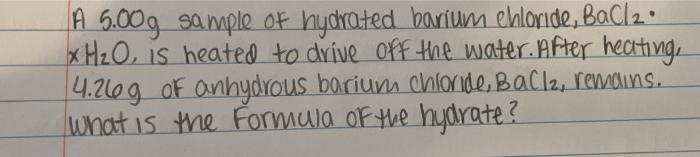 A 5.00g sample of hydrated barium chloride, BaCl2•
xH2O, is heated to drive off the water. After heating,
4.26g of anhydrous barium chloride, BaCl2, remains.
What is the formula of the hydrate?